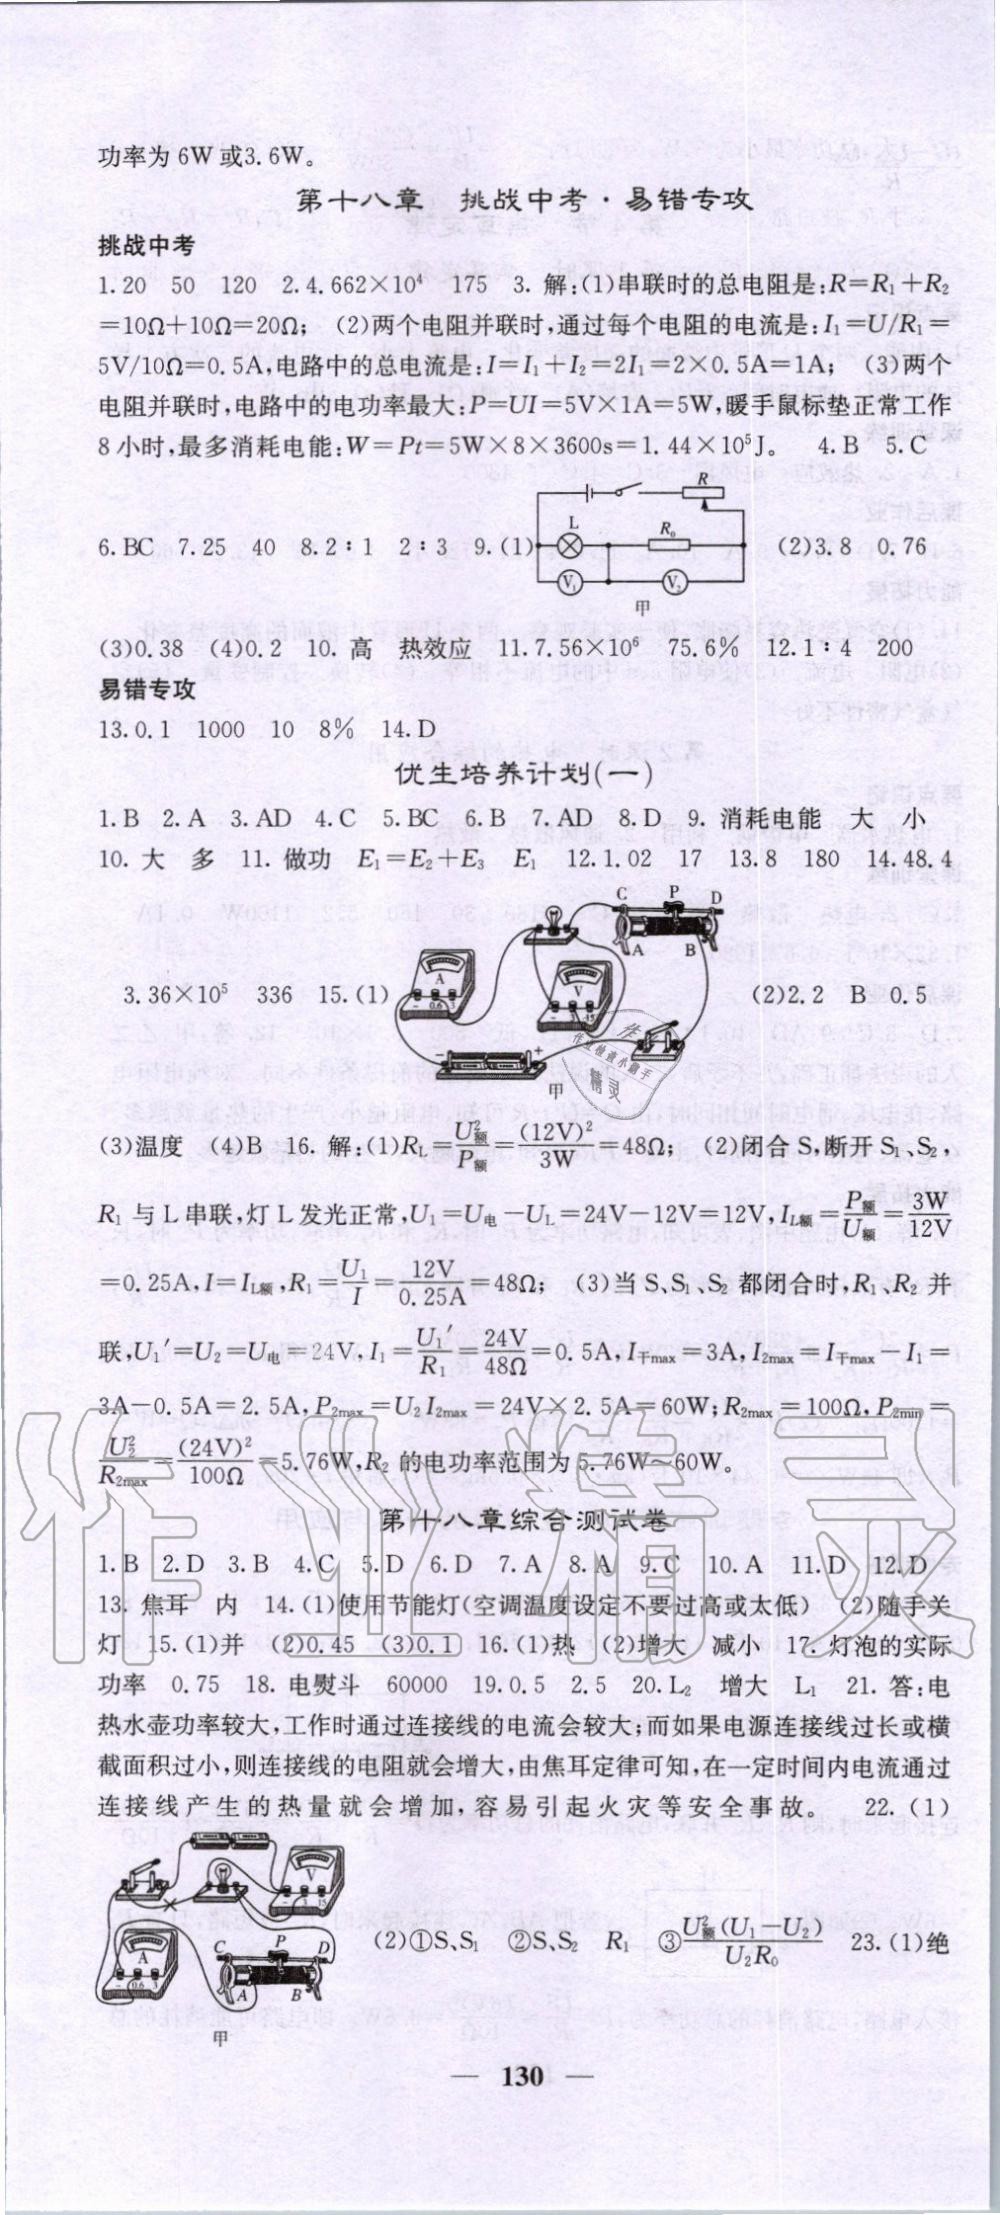 功率为 6W 或3.6W。
第十八章 挑战中考·易错专攻
挑战中考
1.20 50 120 2.4.662×10⁴ 175 3. 解:(1)串联时的总电阻是:R=R₁+R₂
=10Ω+10Ω=20Ω; (2)两个电阻并联时,通过每个电阻的电流是:I₁=U/R₁=
5V/10Ω=0.5A,电路中的总电流是:I=I₁+I₂=2I₁=2×0.5A=1A; (3)两个
电阻并联时,电路中的电功率最大:P=UI=5V×1A=5W,暖手鼠标垫正常工作
8 小时,最多消耗电能:W=Pt=5W×8×3600s=1.44×10⁵J。 4.B 5.C
R
L R₀
6.BC 7.25 40 8.2∶1 2∶3 9.(1) (2)3.8 0.76
V₁ V₂
甲
(3)0.38 (4)0.2 10. 高 热效应 11.7.56×10⁶ 75.6% 12.1∶4 200
易错专攻
13.0.1 1000 10 8% 14.D
优生培养计划(一)
1.B 2.A 3.AD 4.C 5.BC 6.B 7.AD 8.D 9. 消耗电能 大 小
10. 大 多 11. 做功 E₁=E₂+E₃ E₁ 12.1.02 17 13.8 180 14.48.4
C P D
A B
A
V
3.36×10⁵ 336 15.(1) (2)2.2 B 0.5
甲
(3)温度 (4)B 16. 解:(1)R_L=U²额/P额=(12V)²/3W=48Ω; (2)闭合 S,断开 S₁、S₂,
R₁ 与 L 串联,灯 L 发光正常,U₁=U电-U_L=24V-12V=12V,I_L额=P额/U额=3W/12V
=0.25A,I=I_L额,R₁=U₁/I=12V/0.25A=48Ω; (3)当 S、S₁、S₂ 都闭合时,R₁、R₂ 并
联,U₁′=U₂=U电=24V,I₁=U₁′/R₁=24V/48Ω=0.5A,I干max=3A,I₂max=I干max-I₁=
3A-0.5A=2.5A,P₂max=U₂I₂max=24V×2.5A=60W;R₂max=100Ω,P₂min=
U₂²/R₂max=(24V)²/100Ω=5.76W,R₂ 的电功率范围为 5.76W~60W。
第十八章综合测试卷
1.B 2.D 3.B 4.C 5.D 6.D 7.A 8.A 9.C 10.A 11.D 12.D
13. 焦耳 内 14.(1)使用节能灯(空调温度设定不要过高或太低) (2)随手关
灯 15.(1)并 (2)0.45 (3)0.1 16.(1)热 (2)增大 减小 17. 灯泡的实际
功率 0.75 18. 电熨斗 60000 19.0.5 2.5 20.L₂ 增大 L₁ 21. 答:电
热水壶功率较大,工作时通过连接线的电流会较大;而如果电源连接线过长或横
截面积过小,则连接线的电阻就会增大,由焦耳定律可知,在一定时间内电流通过
连接线产生的热量就会增加,容易引起火灾等安全事故。 22.(1)
V
A
C P D
A B
(2)①S、S₁ ②S、S₂ R₁ ③U²额(U₁-U₂)/U₂R₀ 23.(1)绝
甲
— 130 —
作业精灵